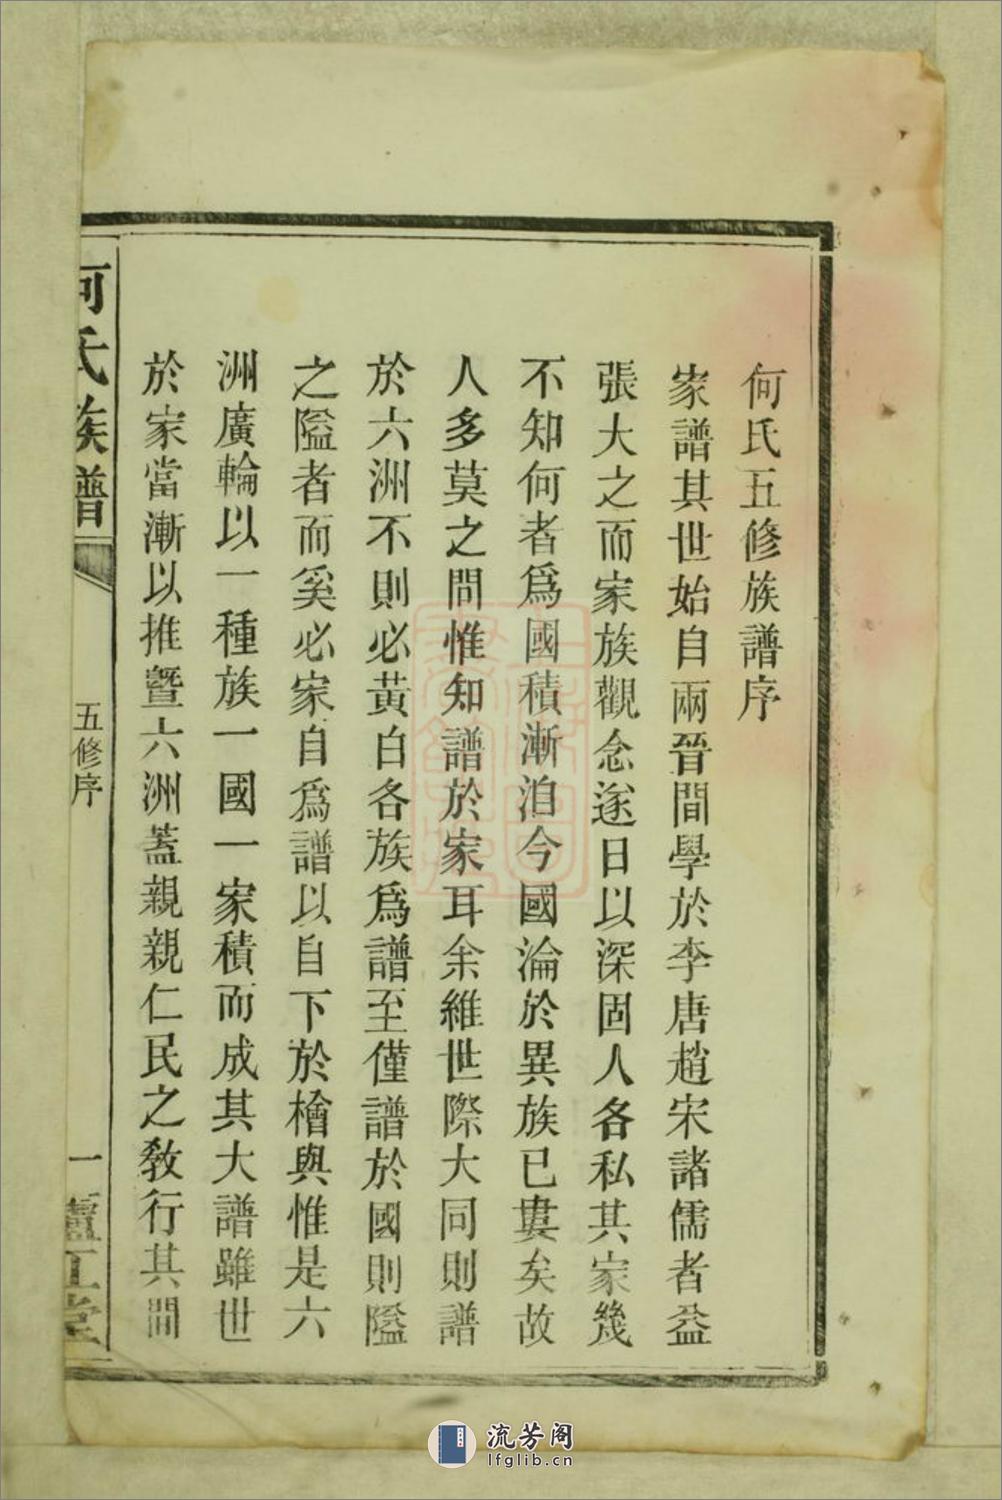 何氏五修族譜序
家譜其世始自兩晉間學於李唐趙宋諸儒者益
張大之而家族觀念遂日以深固人各私其家幾
不知何者爲國積漸洎今國淪於異族已婁矣故
人多莫之問惟知譜於家耳余維世際大同則譜
於六洲不則必黃白各族爲譜至僅譜於國則隘
之隘者而奚必家自爲譜以自下於檜與惟是六
洲廣輪以一種族一國一家積而成其大譜雖世
於家當漸以推暨六洲蓋親親仁民之教行其間
何氏族譜
五修序
一
廬江堂
流芳阁
lfglib.cn